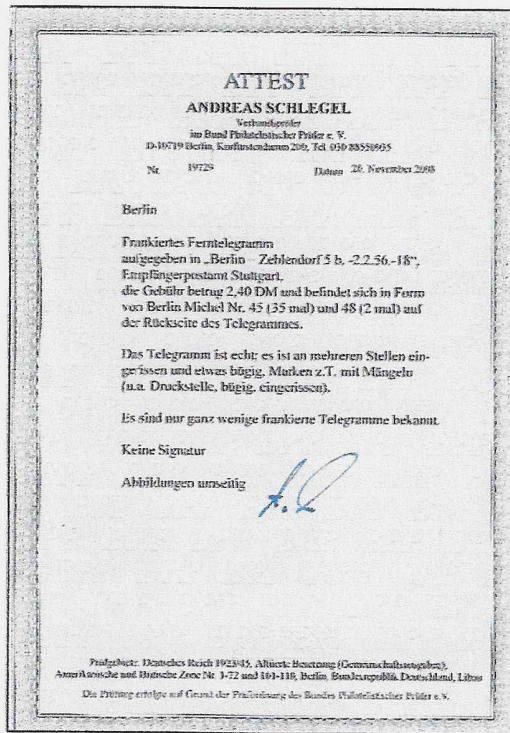 ATTEST
ANDREAS SCHLEGEL
Verbandsprüfer
im Bund Philatelistischer Prüfer e. V.
D-10719 Berlin, Kurfürstendamm 200, Tel. 030 88550935
Nr. 19729 Datum 26. November 2008
Berlin
Frankiertes Ferntelegramm
aufgegeben in „Berlin – Zehlendorf 5 b, -2.2.56.-18",
Empfängerpostamt Stuttgart,
die Gebühr betrug 2,40 DM und befindet sich in Form
von Berlin Michel Nr. 45 (35 mal) und 48 (2 mal) auf
der Rückseite des Telegrammes.
Das Telegramm ist echt; es ist an mehreren Stellen ein-
gerissen und etwas bügig. Marken z.T. mit Mängeln
(u.a. Druckstelle, bügig, eingerissen).
Es sind nur ganz wenige frankierte Telegramme bekannt.
Keine Signatur
Abbildungen umseitig
Prüfgebiete: Deutsches Reich 1923/45, Alliierte Besetzung (Gemeinschaftsausgaben),
Amerikanische und Britische Zone Nr. 1-72 und 101-110, Berlin, Bundesrepublik Deutschland,
Die Prüfung erfolgte auf Grund der Prüfordnung des Bundes Philatelistischer Prüfer e.V.